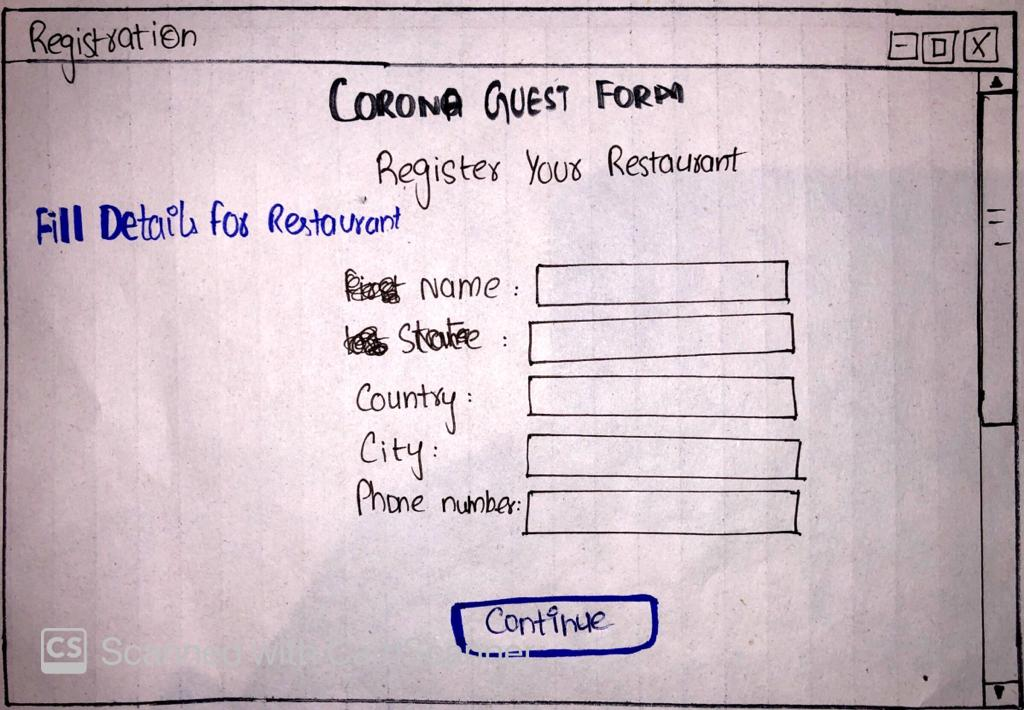 Registration
CORONA GUEST FORM
Register Your Restaurant
Fill Details for Restaurant
Name :
State :
Country :
City :
Phone number:
Continue
CS Scanned with CamScanner